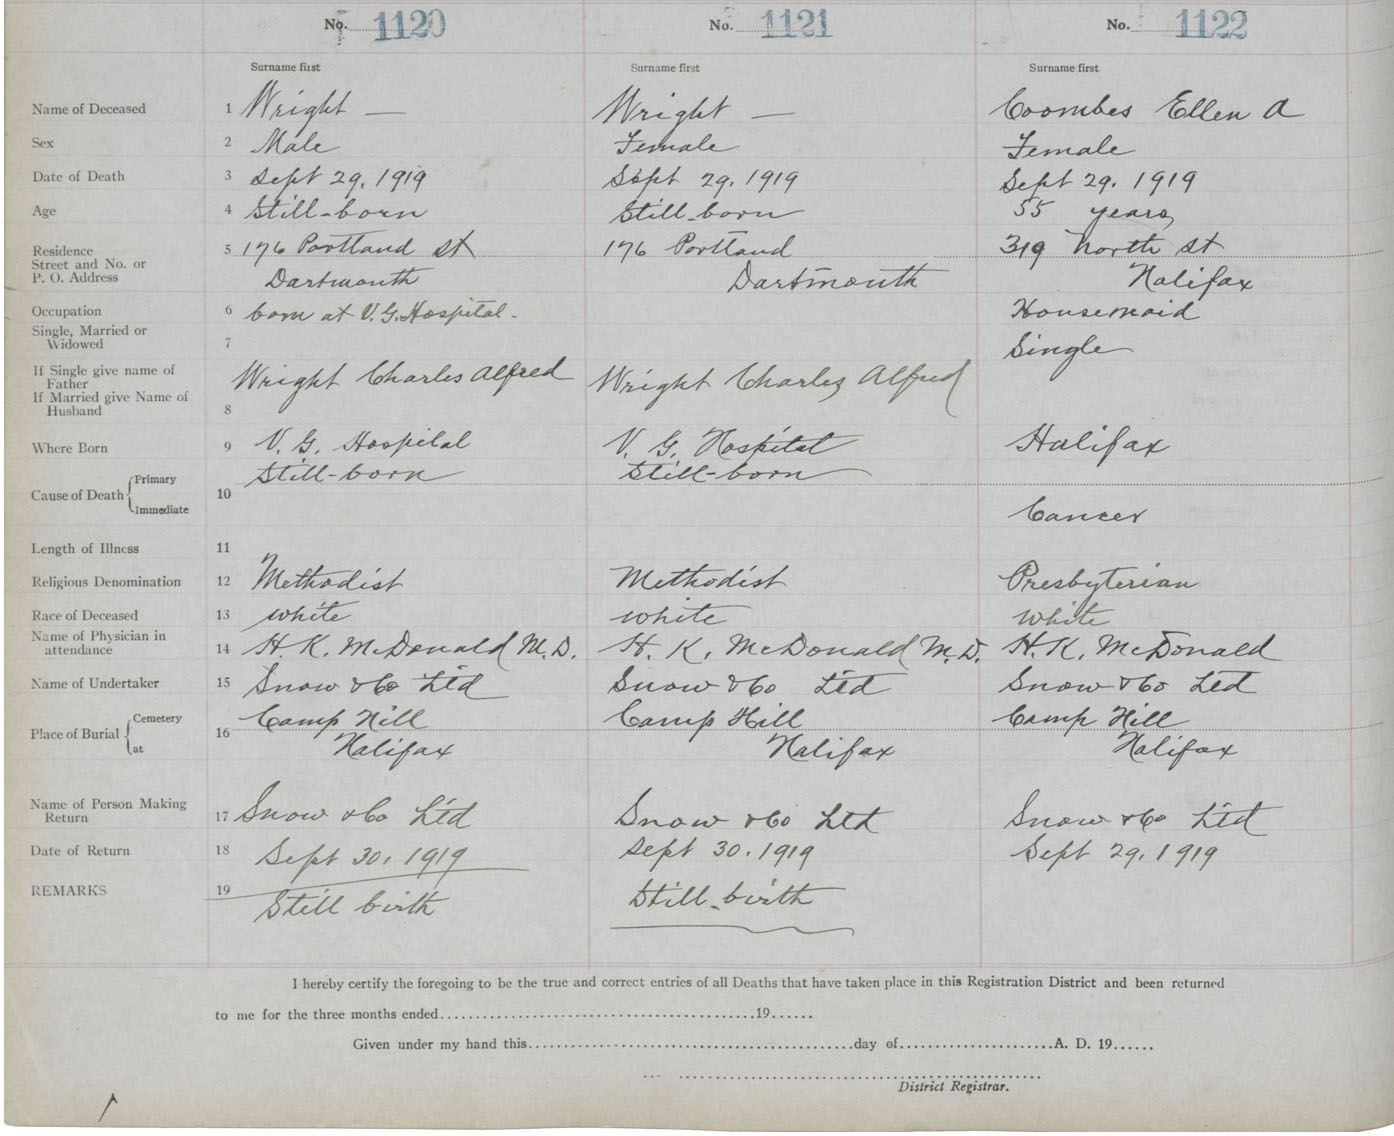 No. 1120 No. 1121 No. 1122
Surname first Surname first Surname first
Name of Deceased 1 Wright — Wright — Coombes Ellen A
Sex 2 Male Female Female
Date of Death 3 Sept 29, 1919 Sept 29. 1919 Sept 29. 1919
Age 4 Still-born Still-born 55 years
Residence 5 176 Portland St 176 Portland 319 North St
Street and No. or
P. O. Address Dartmouth Dartmouth Halifax
Occupation 6 born at V. G. Hospital. Housemaid
Single, Married or
Widowed 7 Single
If Single give name of
Father Wright Charles Alfred Wright Charles Alfred
If Married give Name of
Husband 8
Where Born 9 V. G. Hospital V. G. Hospital Halifax
Primary Still-born Still-born
Cause of Death 10
Immediate Cancer
Length of Illness 11
Religious Denomination 12 Methodist Methodist Presbyterian
Race of Deceased 13 white white white
Name of Physician in
attendance 14 H. K. McDonald M.D. H. K. McDonald M.D. H. K. McDonald
Name of Undertaker 15 Snow & Co Ltd Snow & Co Ltd Snow & Co Ltd
Cemetery Camp Hill Camp Hill Camp Hill
Place of Burial 16
at Halifax Halifax Halifax
Name of Person Making
Return 17 Snow & Co Ltd Snow & Co Ltd Snow & Co Ltd
Date of Return 18 Sept 30. 1919 Sept 30. 1919 Sept 29. 1919
REMARKS 19 Still birth Still-birth
I hereby certify the foregoing to be the true and correct entries of all Deaths that have taken place in this Registration District and been returned
to me for the three months ended..........19......
Given under my hand this..........day of..........A. D. 19......
District Registrar.